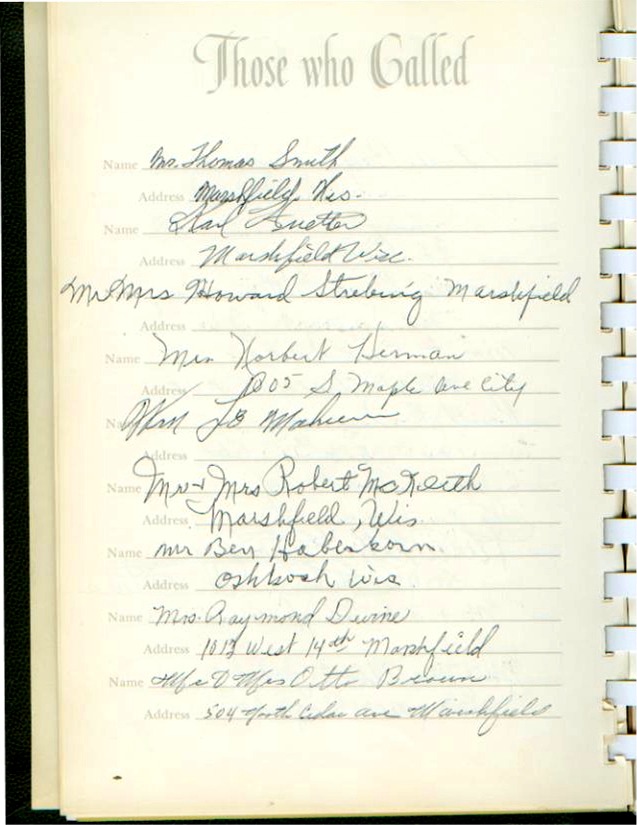 Those who Called
Name Mrs. Thomas Smith
Address Marshfield, Wis.
Name Karl
Address Marshfield Wisc.
Mr Mrs Howard Strebing Marshfield
Address
Name Mrs Norbert Herman
Address S. Maple Ave City
Wm
Address
Name Mr + Mrs Robert McKeith
Address Marshfield, Wis
Name Mr Ben Haberkorn
Address Oshkosh Wis.
Name Mrs. Raymond Devine
Address West 14th Marshfield
Name Mr & Mrs Otto Brown
Address 504 North Cedar ave Marshfield